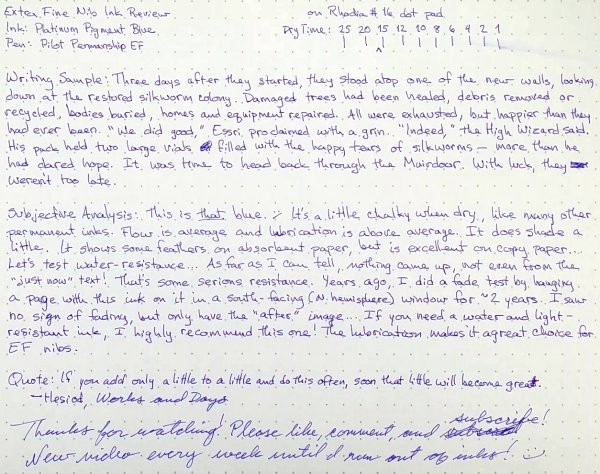 Extra Fine Nib Ink Review on Rhodia #16 dot pad.
Ink: Platinum Pigment Blue Dry Time: 25 20 15 12 10 8 6 4 2 1
Pen: Pilot Penmanship EF
Writing Sample: Three days after they started, they stood atop one of the new walls, looking
down at the restored silkworm colony. Damaged trees had been healed, debris removed or
recycled, bodies buried, homes and equipment repaired. All were exhausted, but happier than they
had ever been. "We did good," Essri proclaimed with a grin. "Indeed," the High Wizard said.
His pack held two large vials filled with the happy tears of silkworms — more than he
had dared hope. It was time to head back through the Muirdoor. With luck, they
weren't too late.
Subjective Analysis: This is that blue. :/ It's a little chalky when dry, like many other
permanent inks. Flow is average and lubrication is above average. It does shade a
little. It shows some feathers on absorbent paper, but is excellent on copy paper...
Let's test water-resistance... As far as I can tell, nothing came up, not even from the
"just now" text! That's some serious resistance. Years ago, I did a fade test by hanging
a page with this ink on it in a south-facing (N. hemisphere) window for ~2 years. I saw
no sign of fading, but only have the "after" image... If you need a water and light-
resistant ink, I highly recommend this one! The lubrication makes it a great choice for
EF nibs.
Quote: If you add only a little to a little and do this often, soon that little will become great.
—Hesiod, Works and Days
Thanks for watching! Please like, comment, and subscribe!
New video every week until I run out of inks! :)